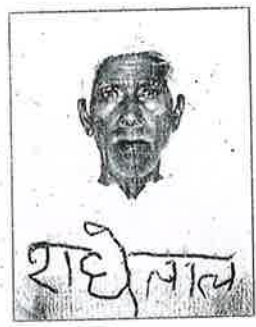 राधेलाल